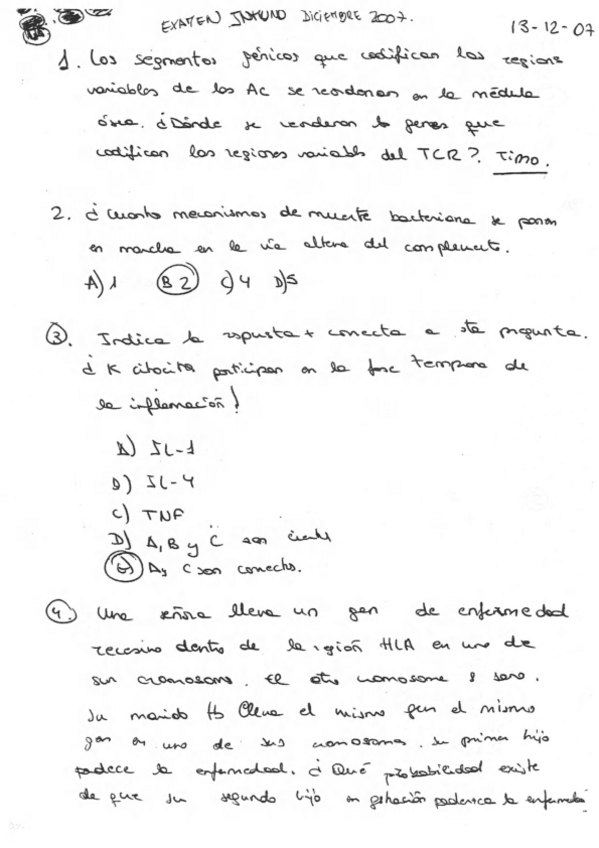 EXAMEN INMUNO DICIEMBRE 2007.
13-12-07
1. Los segmentos génicos que codifican las regions
variables de los Ac se reordenan en la médula
ósea. ¿Dónde se reordenan ls genes que
codifican las regiones variabls del TCR?. Timo.
2. ¿Cuanto mecanismos de muerte bacteriana se ponen
en marcha en la vía alterna del complemento.
A) 1 B 2 C) 4 D) 5
3. Indica la rspuesta + correcta a sta pregunta.
¿ K citocita participan en la fase temprana de
la inflamación!
A) IL-1
B) IL-4
C) TNF
D) A, B y C son ciertas
E) A y C son correctos.
4. Una señora lleva un gen de enfermedad
recesivo dentro de la región HLA en uno de
sus cromosomas. El otro cromosoma s sano.
Su marido tb lleva el mismo gen el mismo
gen en uno de sus cromosomas. Su primer hijo
padece la enfermedad. ¿Qué probabilidad existe
de que su segundo hijo en gestación padezca la enfermedad